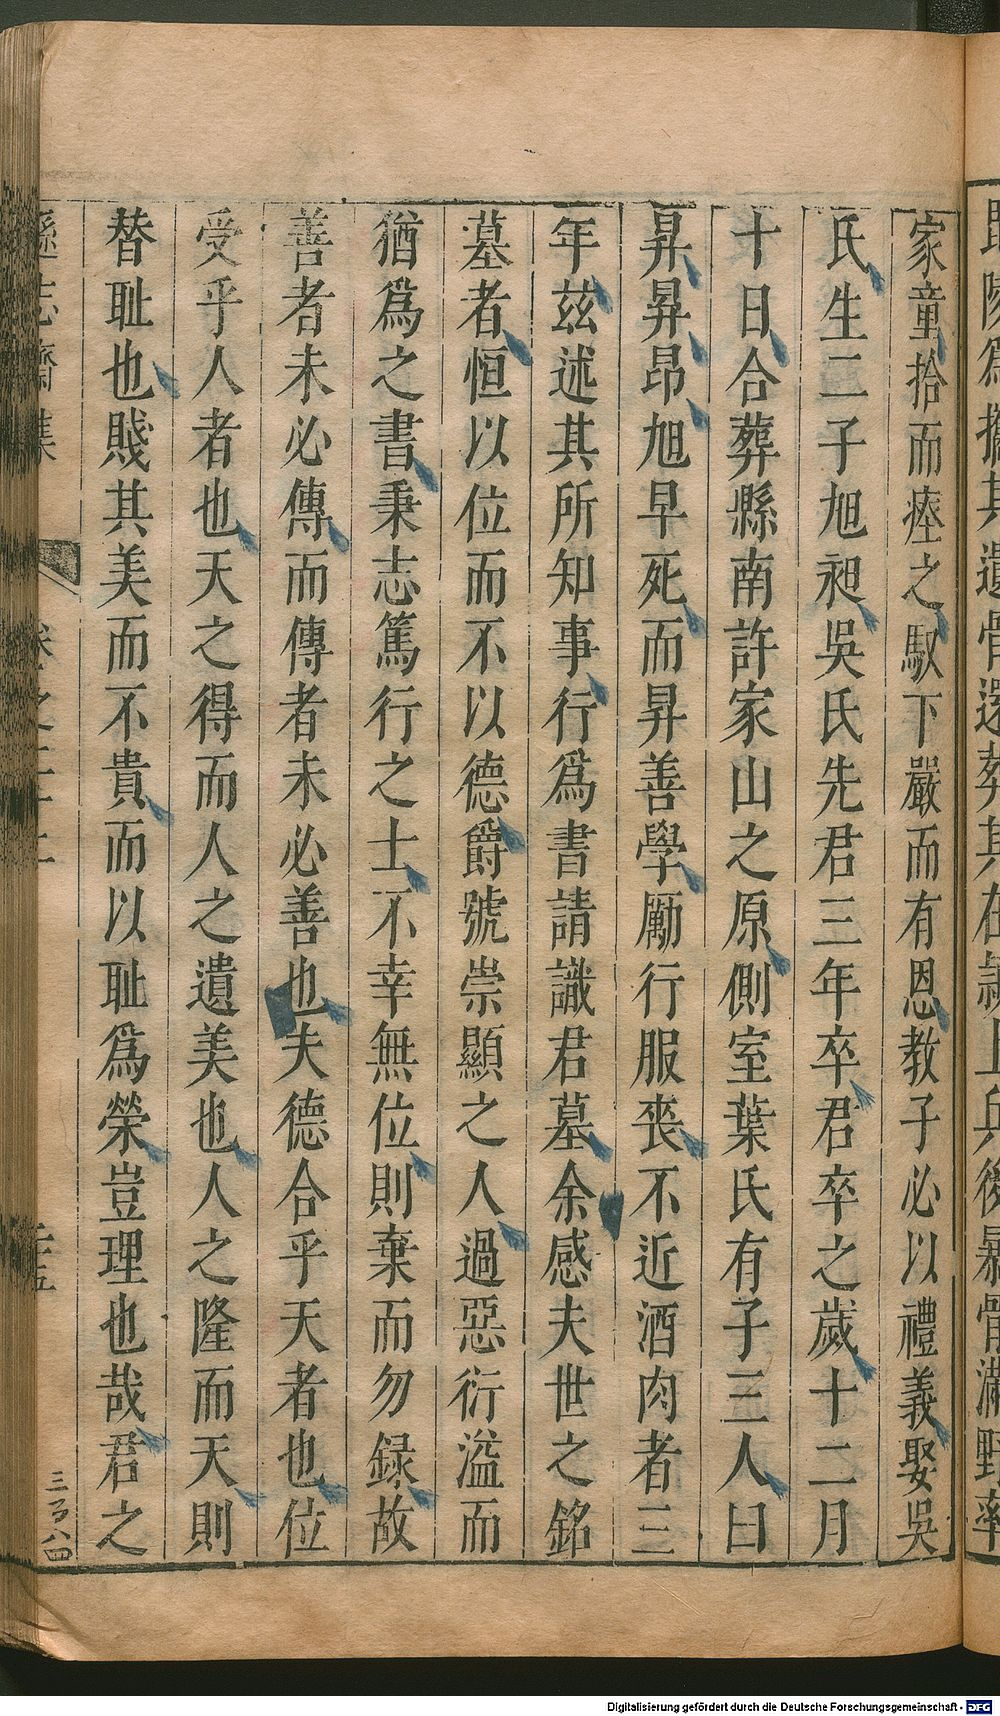 家童拾而瘞之馭下嚴而有恩教子必以禮義娶吳
氏生二子旭昶吳氏先君三年卒君卒之歲十二月
十日合葬縣南許家山之原側室葉氏有子三人曰
昇昪昂旭早死而昇善學勵行服喪不近酒肉者三
年茲述其所知事行爲書請識君墓余感夫世之銘
墓者恒以位而不以德爵號崇顯之人過惡衍溢而
猶爲之書秉志篤行之士不幸無位則棄而勿録故
善者未必傳而傳者未必善也夫德合乎天者也位
受乎人者也天之得而人之遺美也人之隆而天則
替耻也賤其美而不貴而以耻爲榮豈理也哉君之
遜志齋集 卷之二十二 三百八四
Digitalisierung gefördert durch die Deutsche Forschungsgemeinschaft - DFG